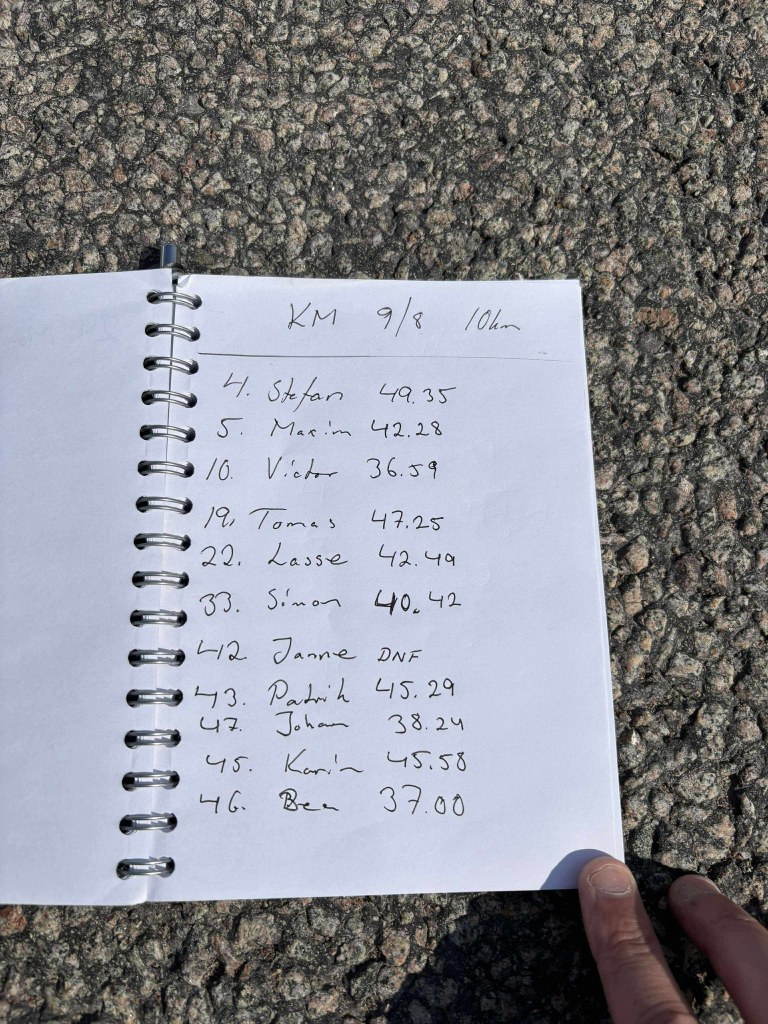 KM 9/8 10km
4. Stefan 49.35
5. Maxim 42.28
10. Victor 36.59
19. Tomas 47.25
22. Lasse 42.49
33. Simon 40.42
42 Janne DNF
43. Patrik 45.29
47. Johan 38.24
45. Karin 45.58
46. Bea 37.00